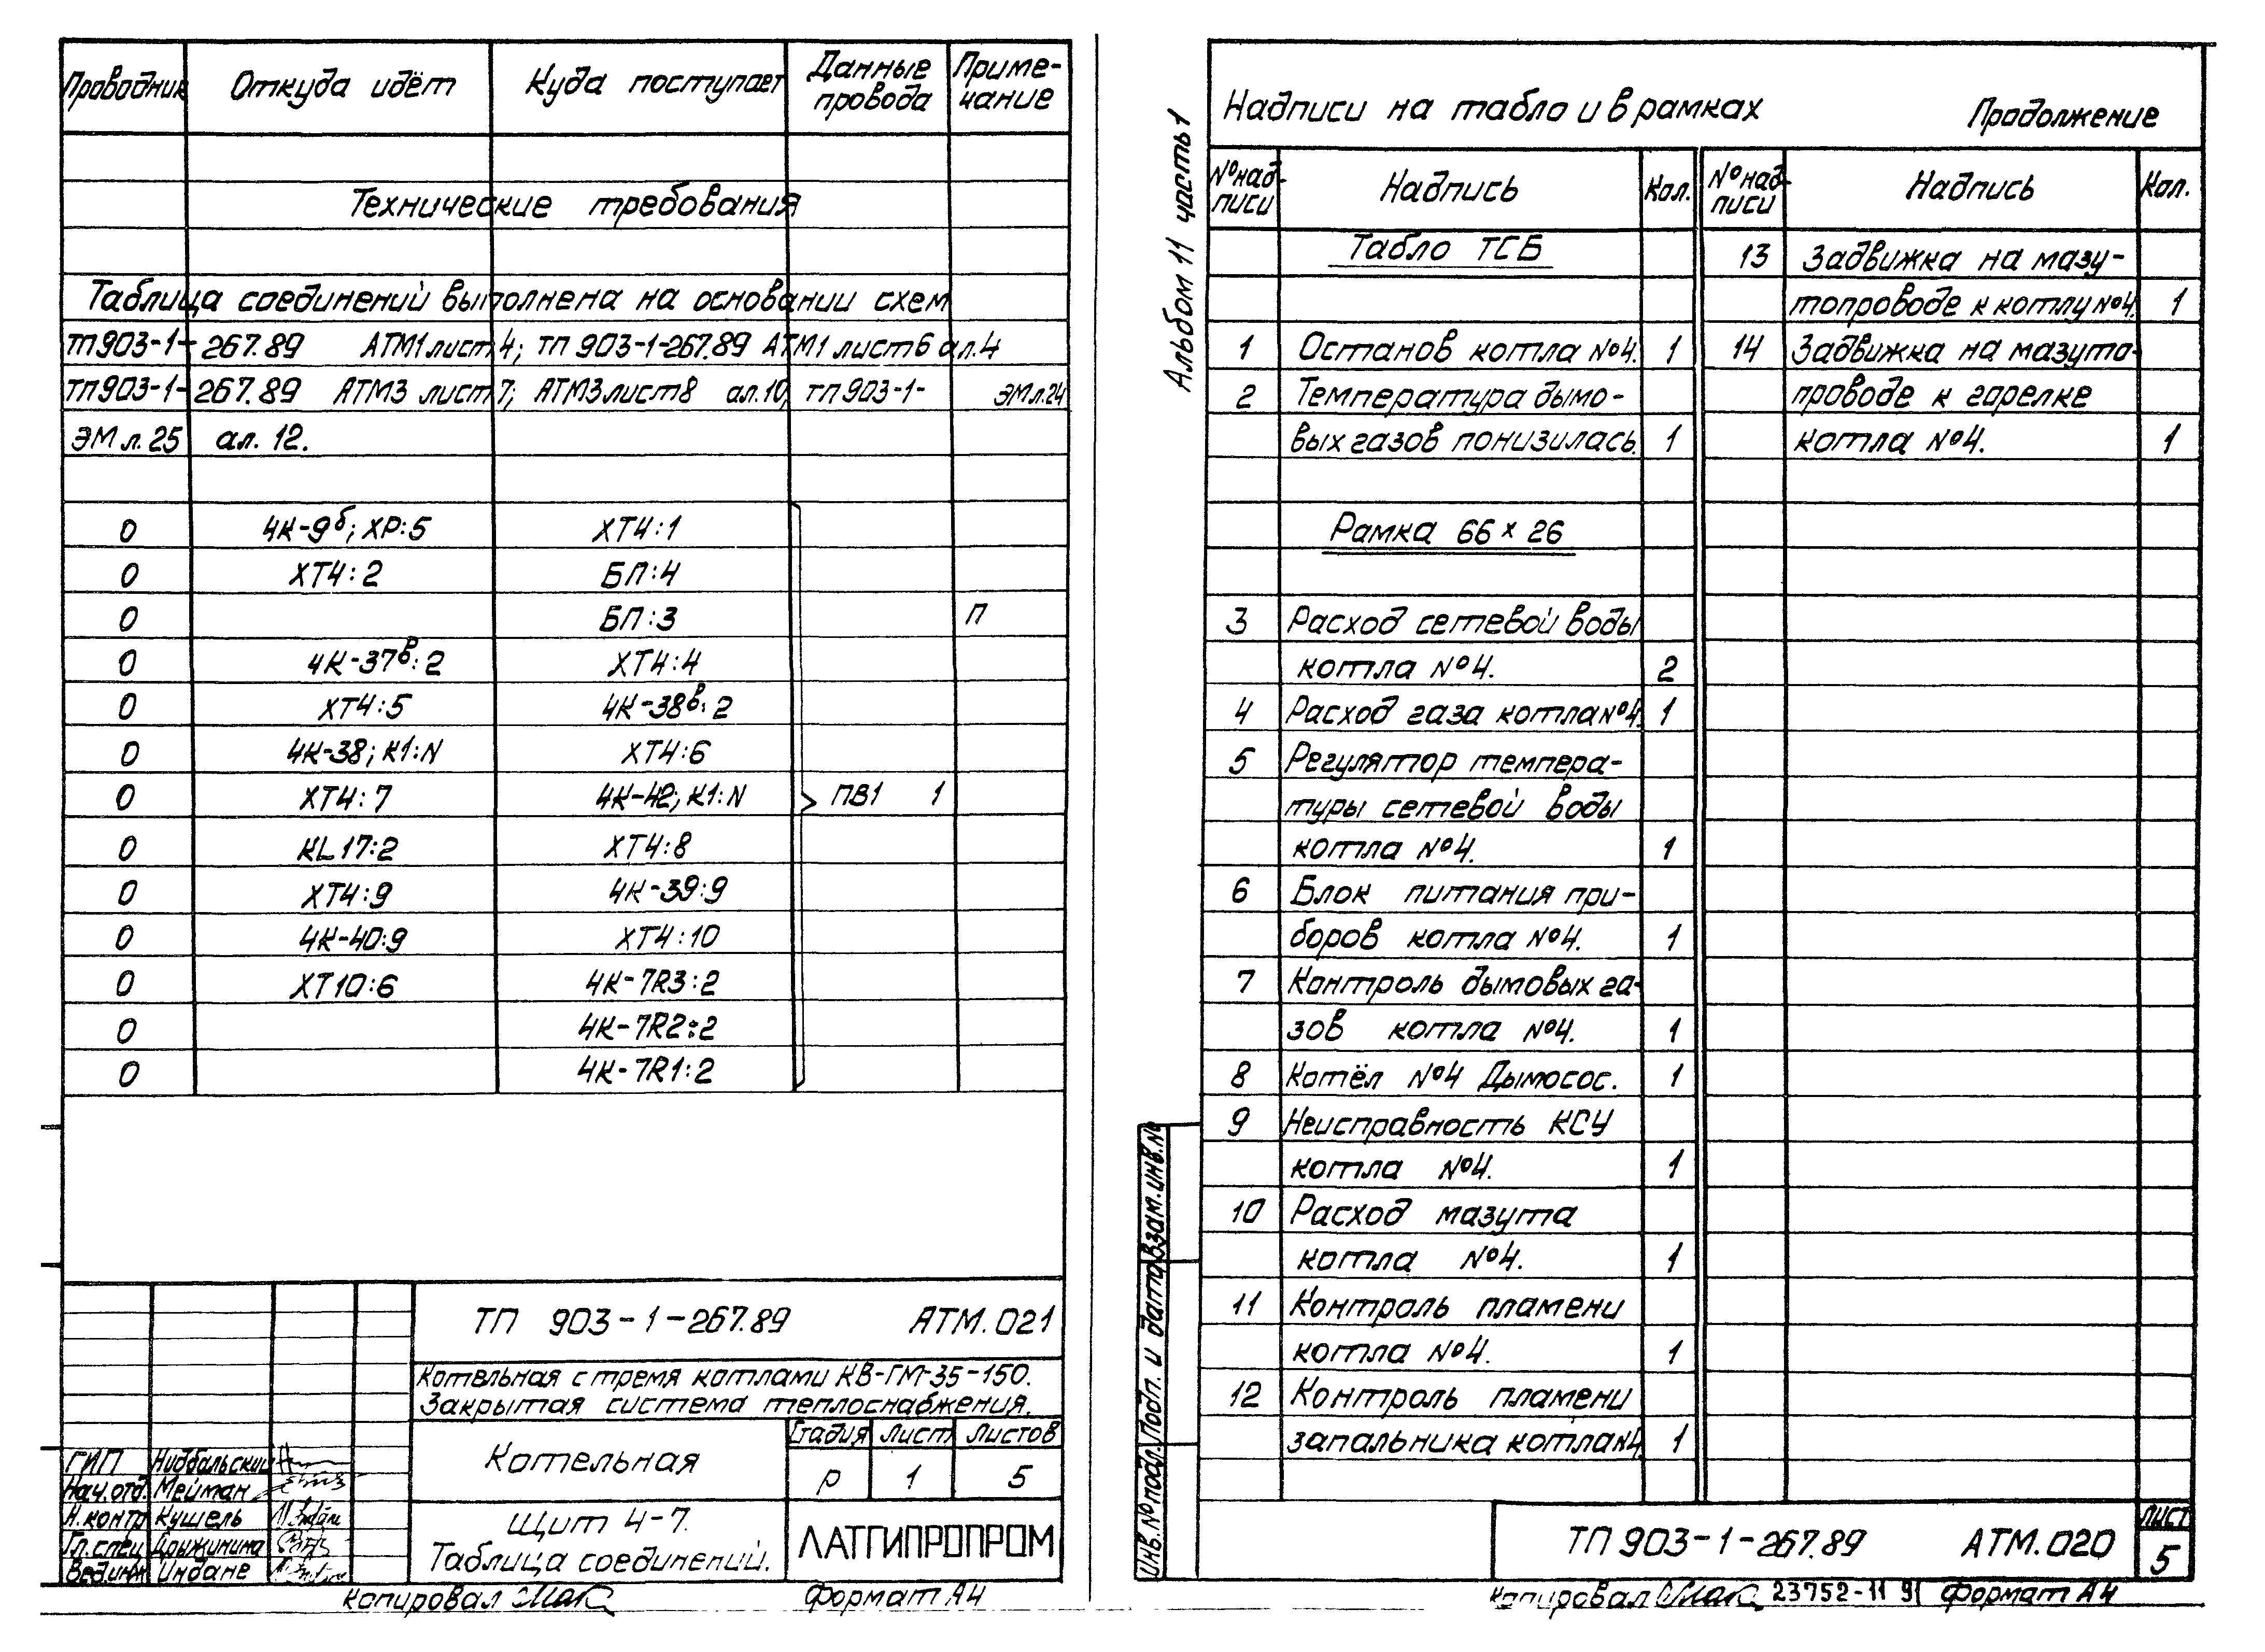 Проводник Откуда идёт Куда поступает Данные провода Приме-чание
Технические требования
Таблица соединений выполнена на основании схем
ТП903-1-267.89 АТМ1 лист 4; ТП 903-1-267.89 АТМ1 лист 6 ал.4
ТП903-1-267.89 АТМ3 лист 7; АТМ3 лист 8 ал.10, ТП903-1- ЭМ л.24
ЭМ л. 25 ал. 12.
0 4К-9б; ХР:5 ХТ4:1
0 ХТ4:2 БП:4
0 БП:3 П
0 4К-37в:2 ХТ4:4
0 ХТ4:5 4К-38в:2
0 4К-38; К1:N ХТ4:6
0 ХТ4:7 4К-42; К1:N ПВ1 1
0 KL17:2 ХТ4:8
0 ХТ4:9 4К-39:9
0 4К-40:9 ХТ4:10
0 ХТ10:6 4К-7R3:2
0 4К-7R2:2
0 4К-7R1:2
ТП 903-1-267.89 АТМ.021
Котельная с тремя котлами КВ-ГМ-35-150.
Закрытая система теплоснабжения.
Котельная
Стадия Лист Листов
Р 1 5
Щит 4-7.
Таблица соединений.
ЛАТГИПРОПРОМ
ГИП Нидбальский
Нач.отд. Мейман
Н.контр Кушель
Гл.спец Дрыжинина
Вед.инж Индане
Копировал Формат А4
Альбом 11 часть 1
Надписи на табло и в рамках Продолжение
№ над-писи Надпись Кол. № над-писи Надпись Кол.
Табло ТСБ
1 Останов котла №4. 1
2 Температура дымо-
вых газов понизилась. 1
Рамка 66 x 26
3 Расход сетевой воды
котла №4. 2
4 Расход газа котла №4. 1
5 Регулятор темпера-
туры сетевой воды
котла №4. 1
6 Блок питания при-
боров котла №4. 1
7 Контроль дымовых га-
зов котла №4. 1
8 Котёл №4 Дымосос. 1
9 Неисправность КСУ
котла №4. 1
10 Расход мазута
котла №4. 1
11 Контроль пламени
котла №4. 1
12 Контроль пламени
запальника котла №4. 1
13 Задвижка на мазу-
топроводе к котлу №4. 1
14 Задвижка на мазуто-
проводе к горелке
котла №4. 1
Инв.№ подл. Подп. и дата Взам.инв.№
ТП 903-1-267.89 АТМ.020
Лист
5
Копировал 23752-11 91 Формат А4